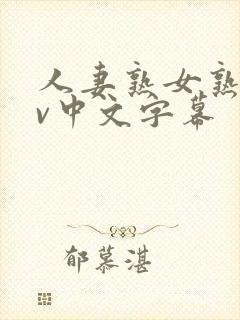 人妻熟女熟
v中文字幕
郁慕湛